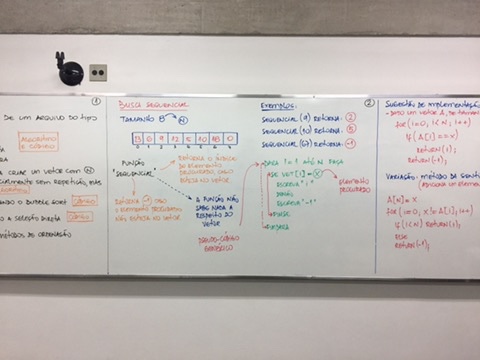 1
DE UM ARQUIVO DO TIPO
ALGORITMO
E CÓDIGO
A CRIAR UM VETOR COM N
SEM REPETIÇÃO, MAS
CÓDIGO
O A SELEÇÃO DIRETA
CÓDIGO
MÉTODOS DE ORDENAÇÃO
BUSCA SEQUENCIAL
TAMANHO 8 → N
13 6 9 12 5 10 18 0
0 1 2 3 4 5 6 7
FUNÇÃO
SEQUENCIAL
RETORNA O ÍNDICE DO
ELEMENTO PROCURADO, CASO
ESTEJA NO VETOR.
RETORNA -1 CASO
O ELEMENTO PROCURADO
NÃO ESTEJA NO VETOR.
A FUNÇÃO NÃO
SABE NADA A
RESPEITO DO
VETOR
PSEUDO-CÓDIGO
GENÉRICO
EXEMPLOS:
2
SEQUENCIAL (9) RETORNA 2
SEQUENCIAL (10) RETORNA 5
SEQUENCIAL (67) RETORNA -1
PARA I = 1 ATÉ N FAÇA
SE VET[I] = X
ESCREVA "I"
SENÃO
ESCREVA "-1"
FIMSE
FIMPARA
ELEMENTO
PROCURADO
SUGESTÃO DE IMPLEMENTAÇÃO
- DADO UM VETOR A, DE TAMAN
for (i=0; i<N; i++)
if (A[i] == x)
RETURN(i);
RETURN(-1);
VARIAÇÃO: MÉTODO DA SENTI
A[N] = X
for (i=0; X != A[i]; i++)
if (i<N) RETURN(i);
ELSE
RETURN(-1);